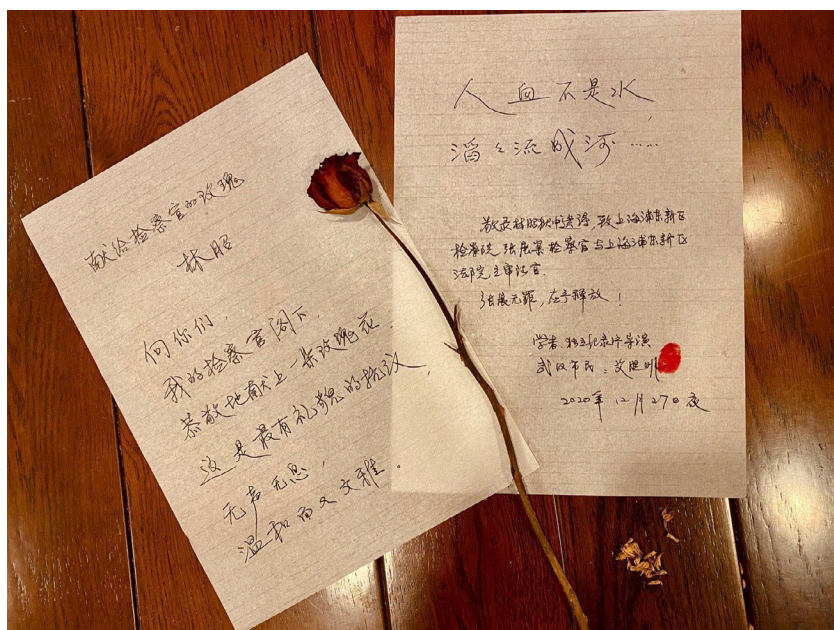 献给检察官的玫瑰
林昭
向你们，
我的检察官阁下，
恭敬地献上一朵玫瑰花，
这是最有礼貌的抗议，
无声无息，
温和而又文雅。
人血不是水，
滔々流成河……
敬录林昭狱中诗，致上海浦东新区
检察院张展案检察官与上海浦东新区
法院主审法官．
张展无罪，应予释放！
学者、独立纪录片导演
武汉市民：艾晓明
2020年12月27日夜